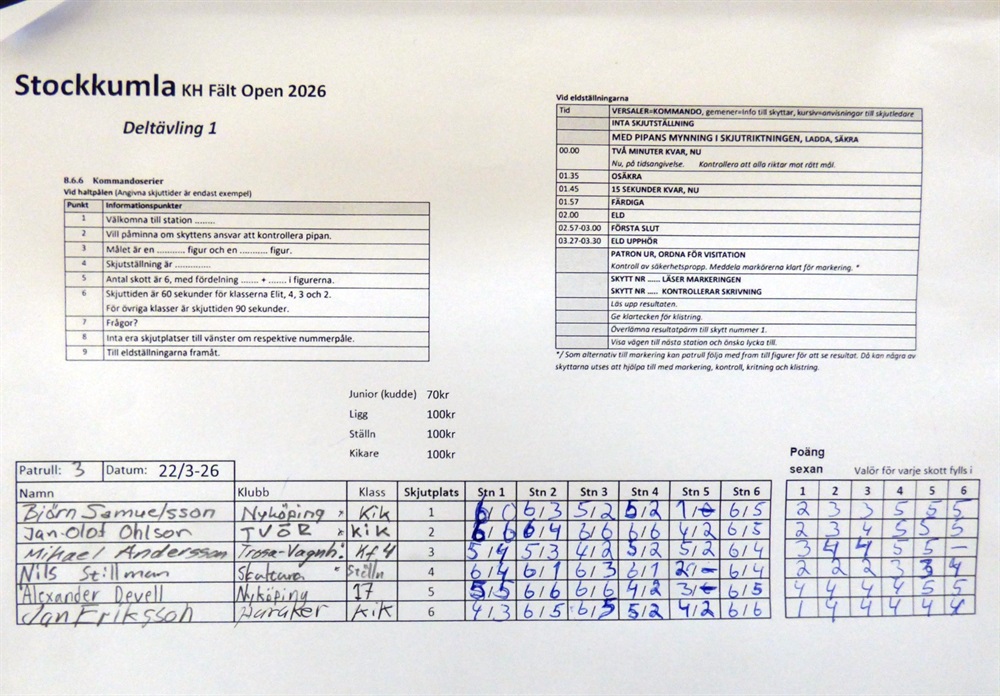 Stockkumla KH Fält Open 2026
Deltävling 1
8.6.6 Kommandoserier
Vid haltpålen (Angivna skjuttider är endast exempel)
Punkt Informationspunkter
1 Välkomna till station ........
2 Vill påminna om skyttens ansvar att kontrollera pipan.
3 Målet är en ........... figur och en .......... figur.
4 Skjutställning är ..............
5 Antal skott är 6, med fördelning ....... + ....... i figurerna.
6 Skjuttiden är 60 sekunder för klasserna Elit, 4, 3 och 2.
För övriga klasser är skjuttiden 90 sekunder.
7 Frågor?
8 Inta era skjutplatser till vänster om respektive nummerpåle.
9 Till eldställningarna framåt.
Vid eldställningarna
Tid VERSALER=KOMMANDO, gemener=info till skyttar, kursiv=anvisningar till skjutledare
INTA SKJUTSTÄLLNING
MED PIPANS MYNNING I SKJUTRIKTNINGEN, LADDA, SÄKRA
00.00 TVÅ MINUTER KVAR, NU
Nu, på tidsangivelse. Kontrollera att alla riktar mot rätt mål.
01.35 OSÄKRA
01.45 15 SEKUNDER KVAR, NU
01.57 FÄRDIGA
02.00 ELD
02.57-03.00 FÖRSTA SLUT
03.27-03.30 ELD UPPHÖR
PATRON UR, ORDNA FÖR VISITATION
Kontroll av säkerhetspropp. Meddela markörerna klart för markering. *
SKYTT NR ...... LÄSER MARKERINGEN
SKYTT NR ..... KONTROLLERAR SKRIVNING
Läs upp resultaten.
Ge klartecken för klistring.
Överlämna resultatpärm till skytt nummer 1.
Visa vägen till nästa station och önska lycka till.
*/ Som alternativ till markering kan patrull följa med fram till figurer för att se resultat. Då kan några av
skyttarna utses att hjälpa till med markering, kontroll, kritning och klistring.
Junior (kudde) 70kr
Ligg 100kr
Ställn 100kr
Kikare 100kr
Patrull: 3 Datum: 22/3-26
Poäng
sexan Valör för varje skott fylls i
Namn Klubb Klass Skjutplats Stn 1 Stn 2 Stn 3 Stn 4 Stn 5 Stn 6 1 2 3 4 5 6
Björn Samuelsson Nyköping Kik 1 6/0 6/3 5/2 5/2 1/0 6/5 2 3 3 5 5 5
Jan-Olof Ohlson TVÖR Kik 2 6/6 6/4 6/6 6/6 4/2 6/5 2 3 4 5 5 5
Mikael Andersson Trosa-Vagnh. Kf4 3 5/4 5/3 4/2 5/2 5/2 6/4 3 4 4 5 5 –
Nils Stillman Ställn 4 6/4 6/1 6/3 6/1 2/- 6/4 2 2 2 3 3 4
Alexander Devell Nyköping 17 5 5/5 6/6 6/6 4/2 3/- 6/5 4 4 4 4 5 5
Jan Eriksson Kik 6 4/3 6/5 6/5 5/2 4/2 6/6 1 4 4 4 4 4